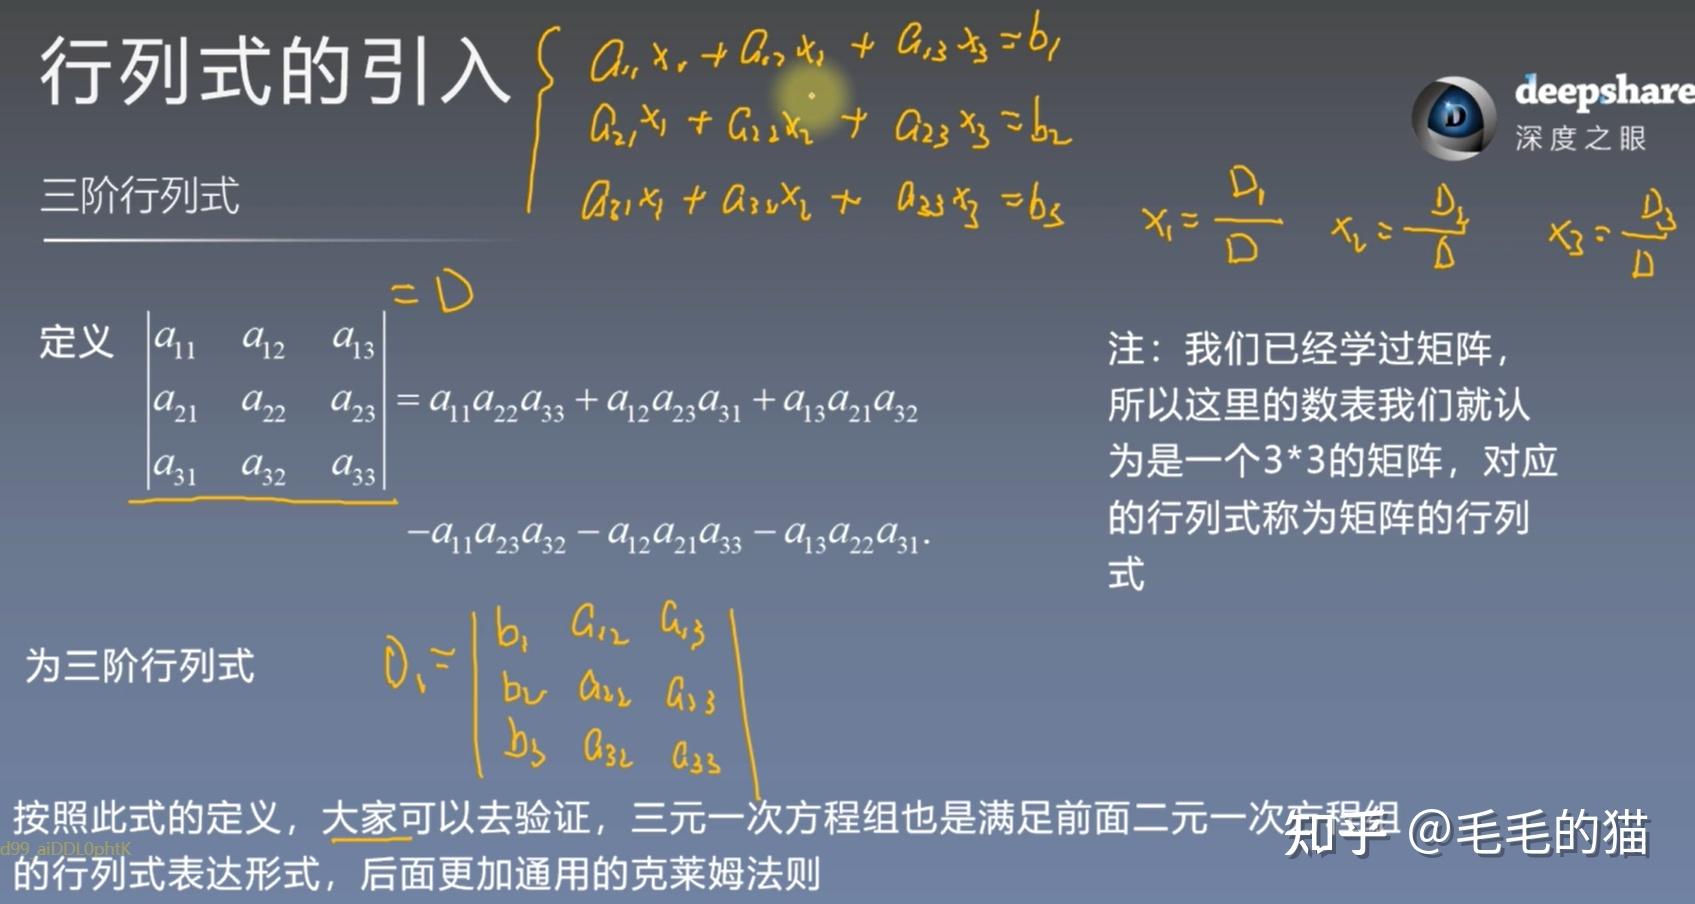 行列式的引入
a₁₁x₁+a₁₂x₂+a₁₃x₃=b₁
a₂₁x₁+a₂₂x₂+a₂₃x₃=b₂
a₃₁x₁+a₃₂x₂+a₃₃x₃=b₃
deepshare
深度之眼
三阶行列式
x₁=D₁/D x₂=D₂/D x₃=D₃/D
=D
定义
a₁₁ a₁₂ a₁₃
a₂₁ a₂₂ a₂₃ =a₁₁a₂₂a₃₃+a₁₂a₂₃a₃₁+a₁₃a₂₁a₃₂
a₃₁ a₃₂ a₃₃
−a₁₁a₂₃a₃₂−a₁₂a₂₁a₃₃−a₁₃a₂₂a₃₁.
注：我们已经学过矩阵，
所以这里的数表我们就认
为是一个3*3的矩阵，对应
的行列式称为矩阵的行列
式
为三阶行列式
D₁=
b₁ a₁₂ a₁₃
b₂ a₂₂ a₂₃
b₃ a₃₂ a₃₃
按照此式的定义，大家可以去验证，三元一次方程组也是满足前面二元一次方程组
的行列式表达形式，后面更加通用的克莱姆法则
d99_aiDDL0phtK
知乎 @毛毛的猫